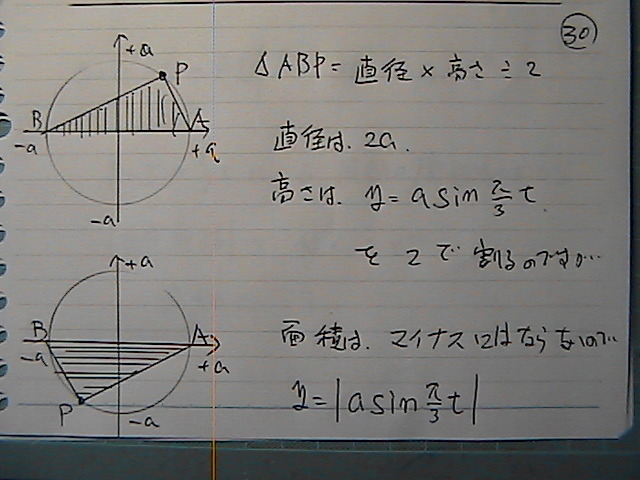 30
+a
P
B
A
-a
+a
-a
△ABP = 直径 × 高さ ÷ 2
直径は、2a.
高さは、y = a sin π/3 t
を 2で 割るのですが…
+a
B
A
-a
+a
P
-a
面積は、マイナスにはならないので
y = |a sin π/3 t|